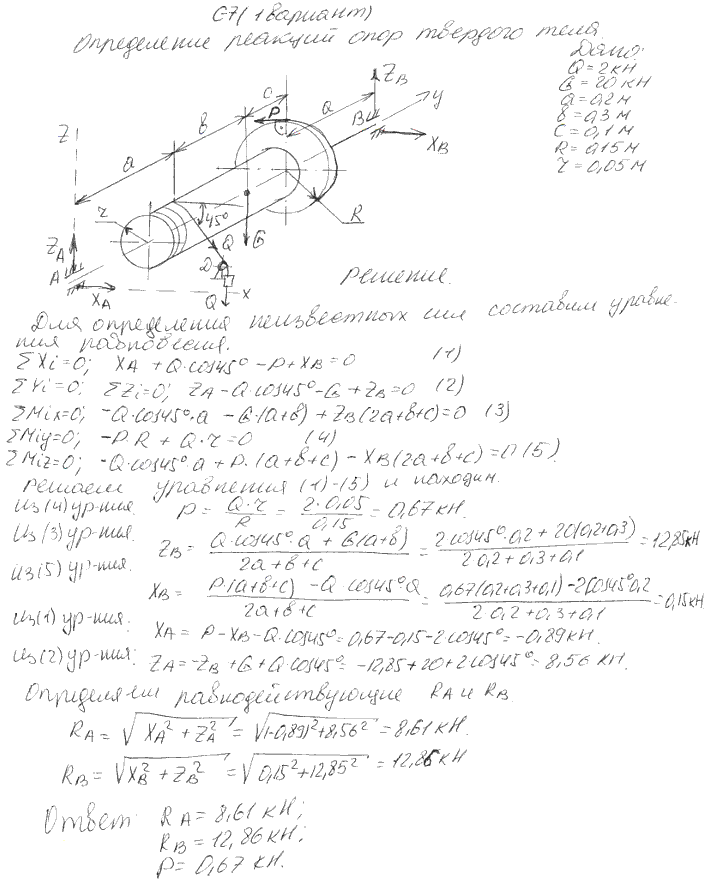 С7 (1 вариант)
Определение реакций опор твердого тела.
Дано:
Q = 2 кН
G = 20 кН
a = 0,2 м
b = 0,3 м
C = 0,1 м
R = 0,15 м
r = 0,05 м
Z
a
b
c
P
a
Z_B
B
y
X_B
r
45°
Q
G
R
Z_A
A
X_A
D
Q
x
Решение.
Для определения неизвестных сил составим уравне-
ния равновесия.
ΣXi=0; X_A + Q·cos45° - P + X_B = 0 (1)
ΣYi=0; ΣZi=0; Z_A - Q·cos45° - G + Z_B = 0 (2)
ΣMix=0; -Q·cos45°·a - G·(a+b) + Z_B(2a+b+c)=0 (3)
ΣMiy=0; -P·R + Q·r = 0 (4)
ΣMiz=0; -Q·cos45°·a + P·(a+b+c) - X_B(2a+b+c) = 0 (5)
Решаем уравнения (1)-(5) и находим.
Из (4) ур-ния. P = Q·r/R = 2·0,05/0,15 = 0,67 кН.
Из (3) ур-ния. Z_B = (Q·cos45°·a + G(a+b))/(2a+b+c) = (2cos45°·0,2 + 20(0,2+0,3))/(2·0,2+0,3+0,1) = 12,85 кН
Из (5) ур-ния. X_B = (P·(a+b+c) - Q·cos45°·a)/(2a+b+c) = (0,67(0,2+0,3+0,1) - 2cos45°0,2)/(2·0,2+0,3+0,1) = 0,15 кН
Из (1) ур-ния: X_A = P - X_B - Q·cos45° = 0,67-0,15-2cos45° = -0,89 кН.
Из (2) ур-ния: Z_A = -Z_B + G + Q·cos45° = -12,85 + 20 + 2cos45° = 8,56 кН.
Определяем равнодействующие R_A и R_B.
R_A = √(X_A² + Z_A²) = √((-0,89)² + 8,56²) = 8,61 кН.
R_B = √(X_B² + Z_B²) = √(0,15² + 12,85²) = 12,86 кН
Ответ: R_A = 8,61 кН;
R_B = 12,86 кН;
P = 0,67 кН.